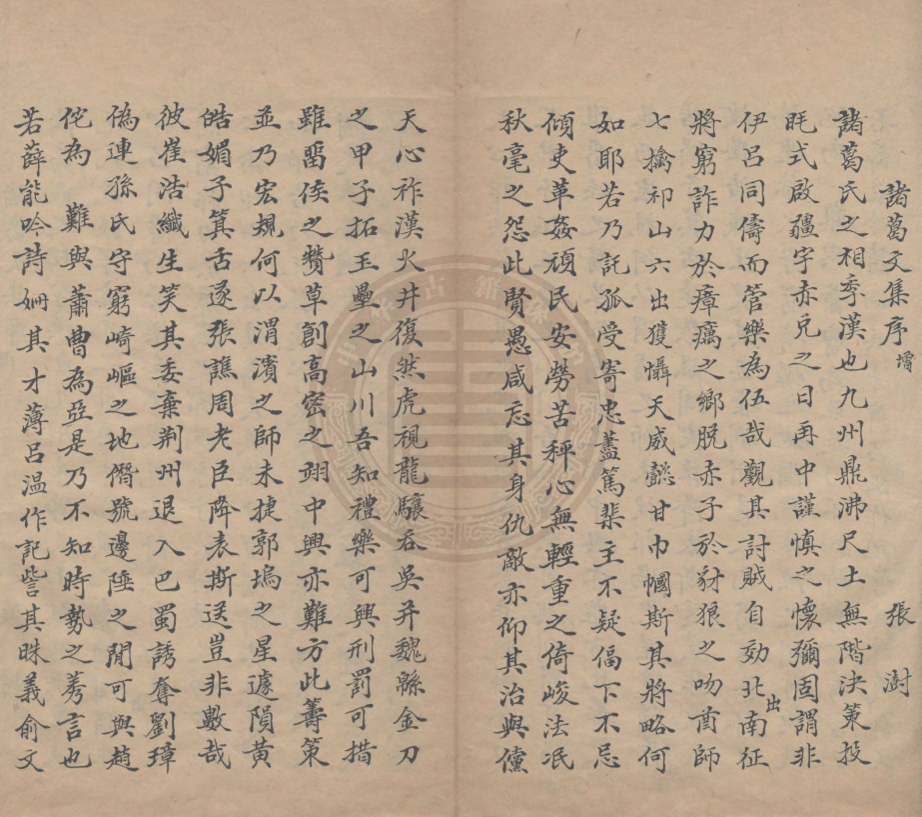 諸葛文集序增
張澍
諸葛氏之相季漢也九州鼎沸尺土無階決策投
眊式啟疆宇赤兌之日再中謹慎之懷彌固謂非
伊呂同儔而管樂為伍哉觀其討賊自効北出南征
將窮詐力於瘴癘之鄉脫赤子於豺狼之吻酋師
七擒祁山六出獲懾天威懿甘巾幗斯其將略何
如耶若乃託孤受寄忠藎篤棐主不疑偪下不忌
傾吏革姦頑民安勞苦秤心無輕重之倚峻法冺
秋毫之怨此賢愚咸忘其身仇敵亦仰其治與儻
天心祚漢火井復然虎視龍驤吞吳并魏緜金刀
之甲子拓玉壘之山川吾知禮樂可興刑罰可措
雖畱侯之贊草創高密之翊中興亦難方此籌策
並乃宏規何以渭濱之師未捷郭塢之星遽隕黄
皓媚子箕舌遂張譙周老臣降表斯送豈非數哉
彼崔浩纖生笑其委棄荆州退入巴蜀誘奪劉璋
偽連孫氏守窮崎嶇之地僭號邊陲之閒可與趙
佗為 難與蕭曹為亞是乃不知時勢之莠言也
若薛能吟詩姍其才薄呂温作記訾其昧義俞文